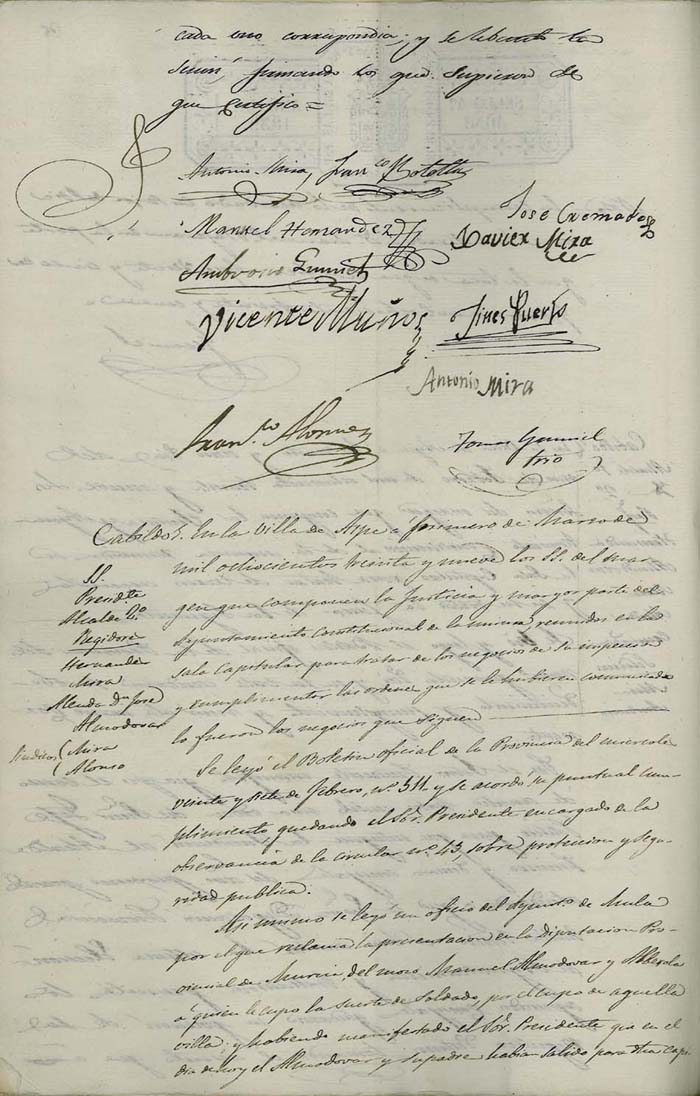 cada uno correspondia; y se lebantó la
sesion, firmando los que supieron de
que certifico=
Antonio Mira, Franco Botella
Jose Cremades
Manuel Hernandez
Xavier Mira
Ambrosio
Vicente Muños
Jines Puerto
Antonio Mira
Franco Alonso
Tomas
srio
Cabildo. En la villa de Aspe á primero de Marzo de
mil ochocientos treinta y nueve los SS. del mar
gen que componen la Justicia y mayor parte del
Ayuntamiento Constitucional de la misma reunidos en la
sala capitular para tratar de los negocios de su
y cumplimentar las ordenes que se le hubieren comunicado
lo fueron los negocios que siguen
SS.
Presidte
Alcalde 2o
Regidores
Hernandez
Mira
Almodovar
Sindicos
Mira
Alonso
Se leyó el Boletin oficial de la Provincia del miercoles
veinte y siete de febrero, no. 511 y se acordó su puntual cum-
plimiento, quedando el Sor. Presidente encargado de la
observancia de la circular no. 43, sobre proteccion y segu-
ridad publica.
Asi mismo se leyó un oficio del Ayunto. de Mula
por el que reclama la presentacion en la Diputacion Pro-
vincial de Murcia, del mozo Manuel Almodovar y Alberola
á quien le cupo la suerte de soldado, por el cupo de aquella
villa; y habiendo manifestado el Sor. Presidente que en el
dia de hoy el Almodovar y su padre habian salido para dha capi-